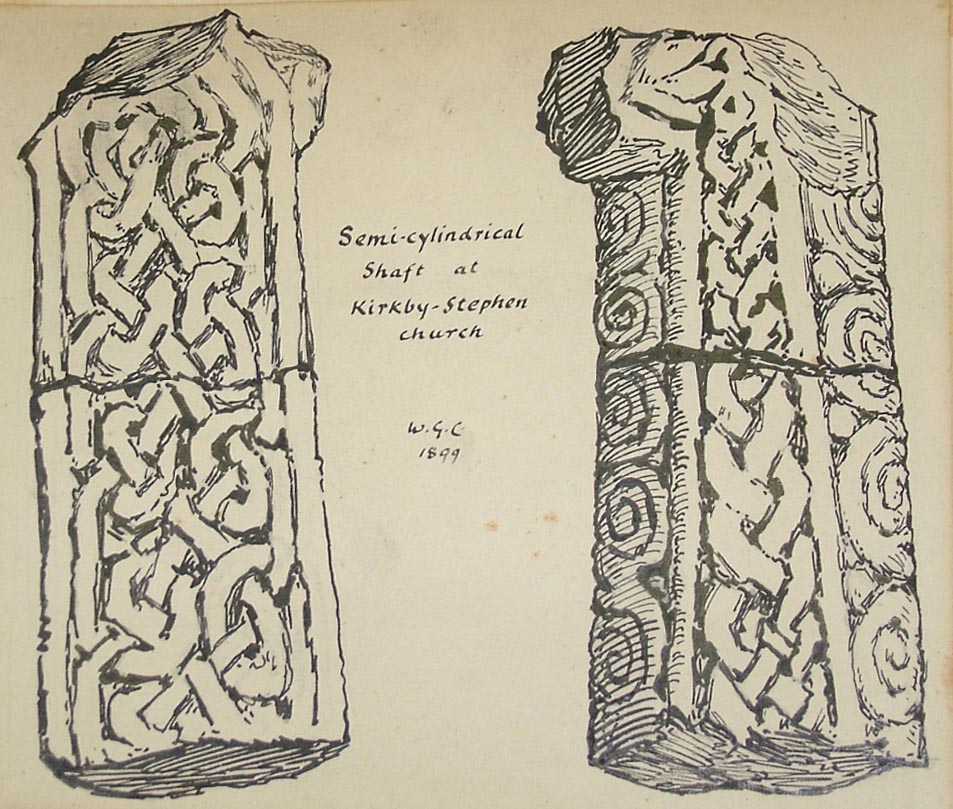 Semi-cylindrical
Shaft at
Kirkby-Stephen
church
W.G.C
1899